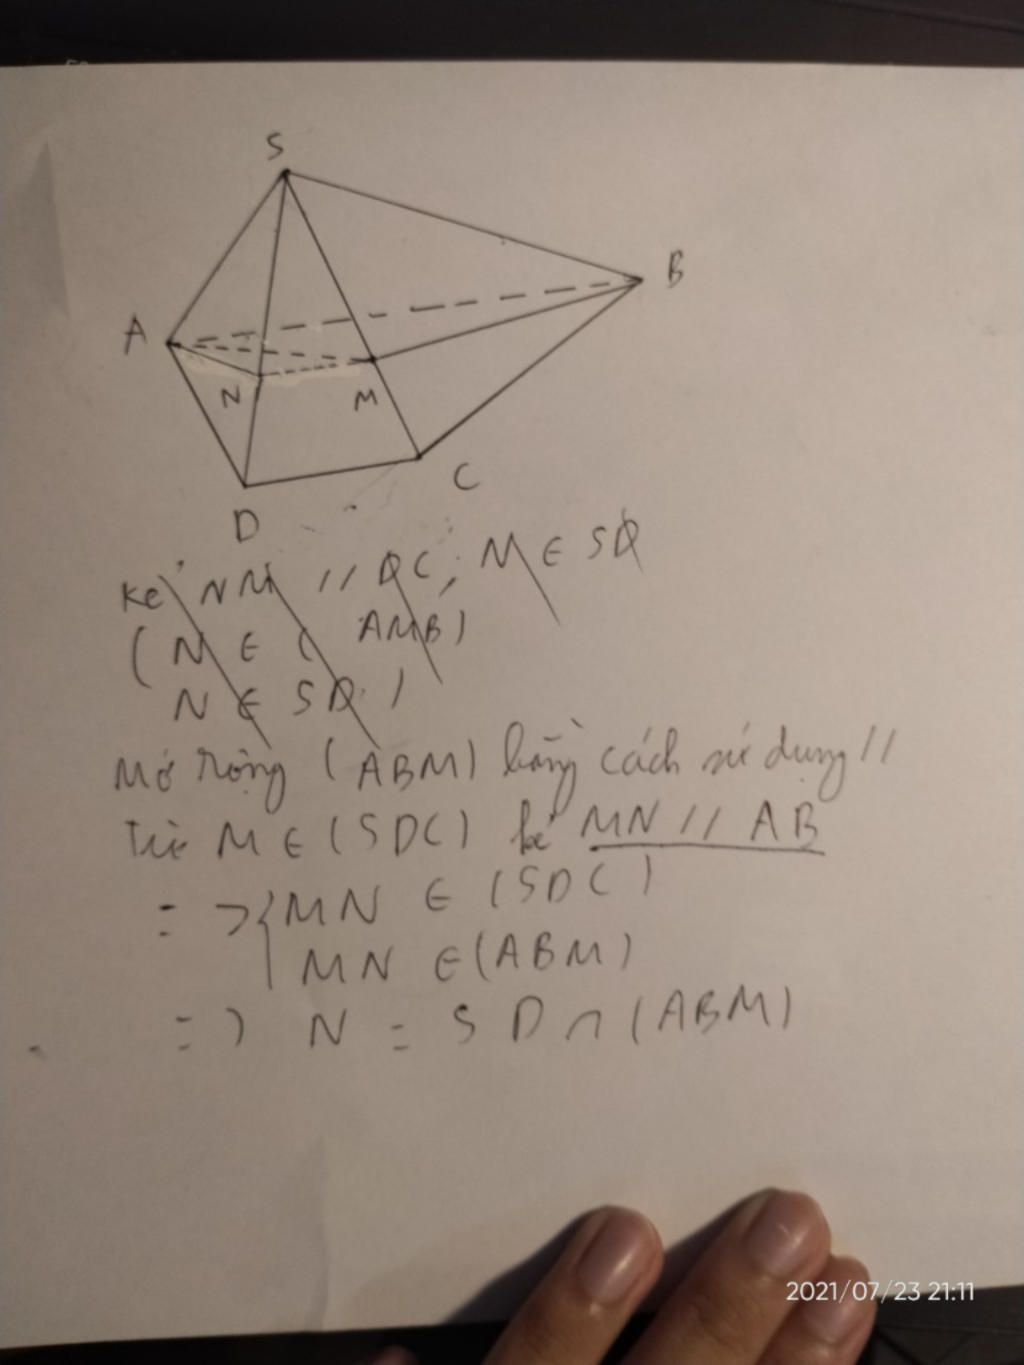 S
B
A
N
M
C
D
kẻ NM // DC, M ∈ SD
( N ∈ ( AMB )
N ∈ SD )
Mở rộng (ABM) bằng cách sử dụng //
Từ M ∈ (SDC) kẻ MN // AB
=> { MN ∈ (SDC)
MN ∈ (ABM)
=> N = SD ∩ (ABM)
2021/07/23 21:11